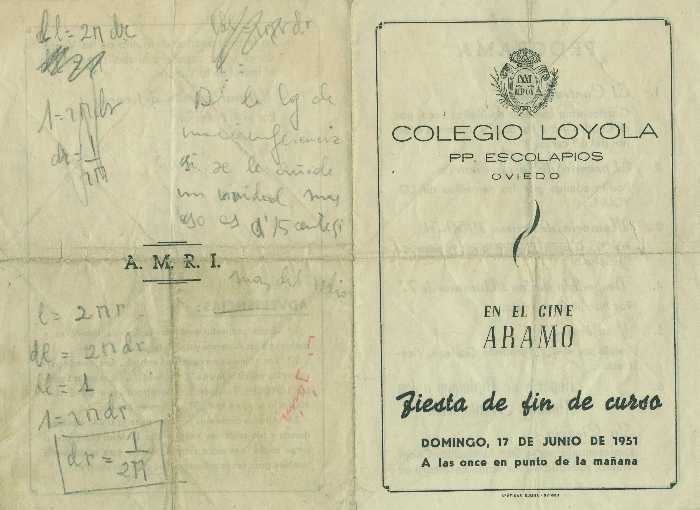 dl = 2π dr
1 = 2π dr
dr = 1/2π
l =
A la log de
una circunferencia
si se le añade
una unidad mas
eso es 0'15
A. M. R. I.
mas del
l = 2πr
dl = 2π dr
dl = 1
1 = 2π dr
dr = 1/2π
COLEGIO LOYOLA
PP. ESCOLAPIOS
OVIEDO
EN EL CINE
ARAMO
Fiesta de fin de curso
DOMINGO, 17 DE JUNIO DE 1951
A las once en punto de la mañana